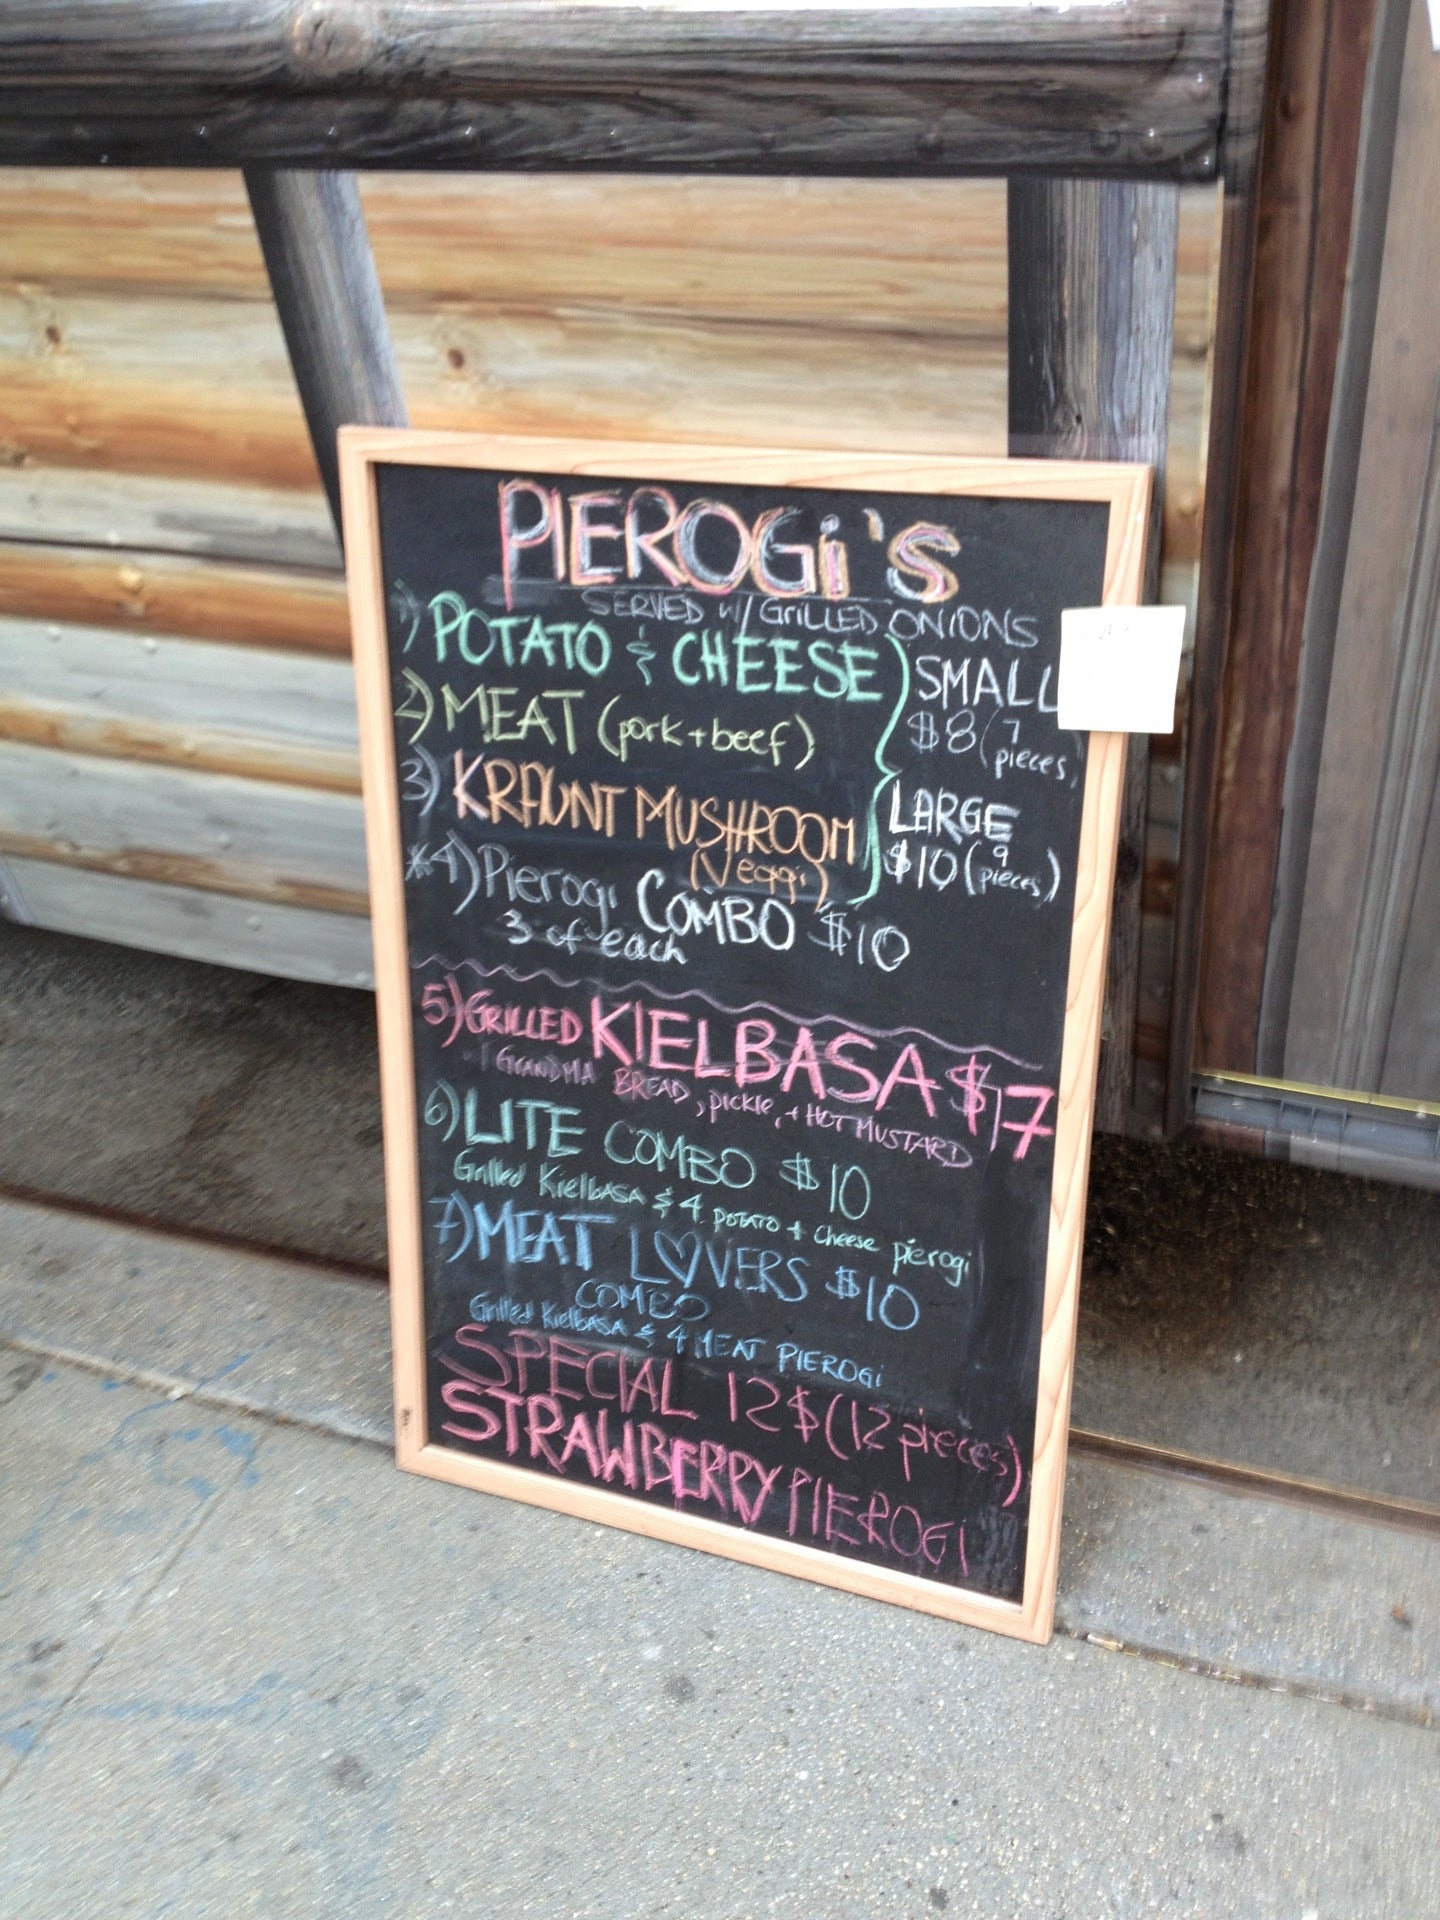 PIEROGi's
SERVED W/ GRILLED ONIONS
1) POTATO & CHEESE
2) MEAT (pork + beef)
3) KRAUNT MUSHROOM
(Veggi)
SMALL
$8 (7 pieces
LARGE
$10 (9 pieces)
*4) Pierogi COMBO $10
3 of each
5) GRILLED KIELBASA $7
GRANDMA BREAD, PICKLE, + HOT MUSTARD
6) LITE COMBO $10
Grilled KielBASA & 4 POTATO + Cheese Pierogi
7) MEAT LOVERS $10
COMBO
Grilled KielBASA & 4 MEAT PIEROGi
SPECIAL 12$ (12 pieces)
STRAWBERRY PIEROGi